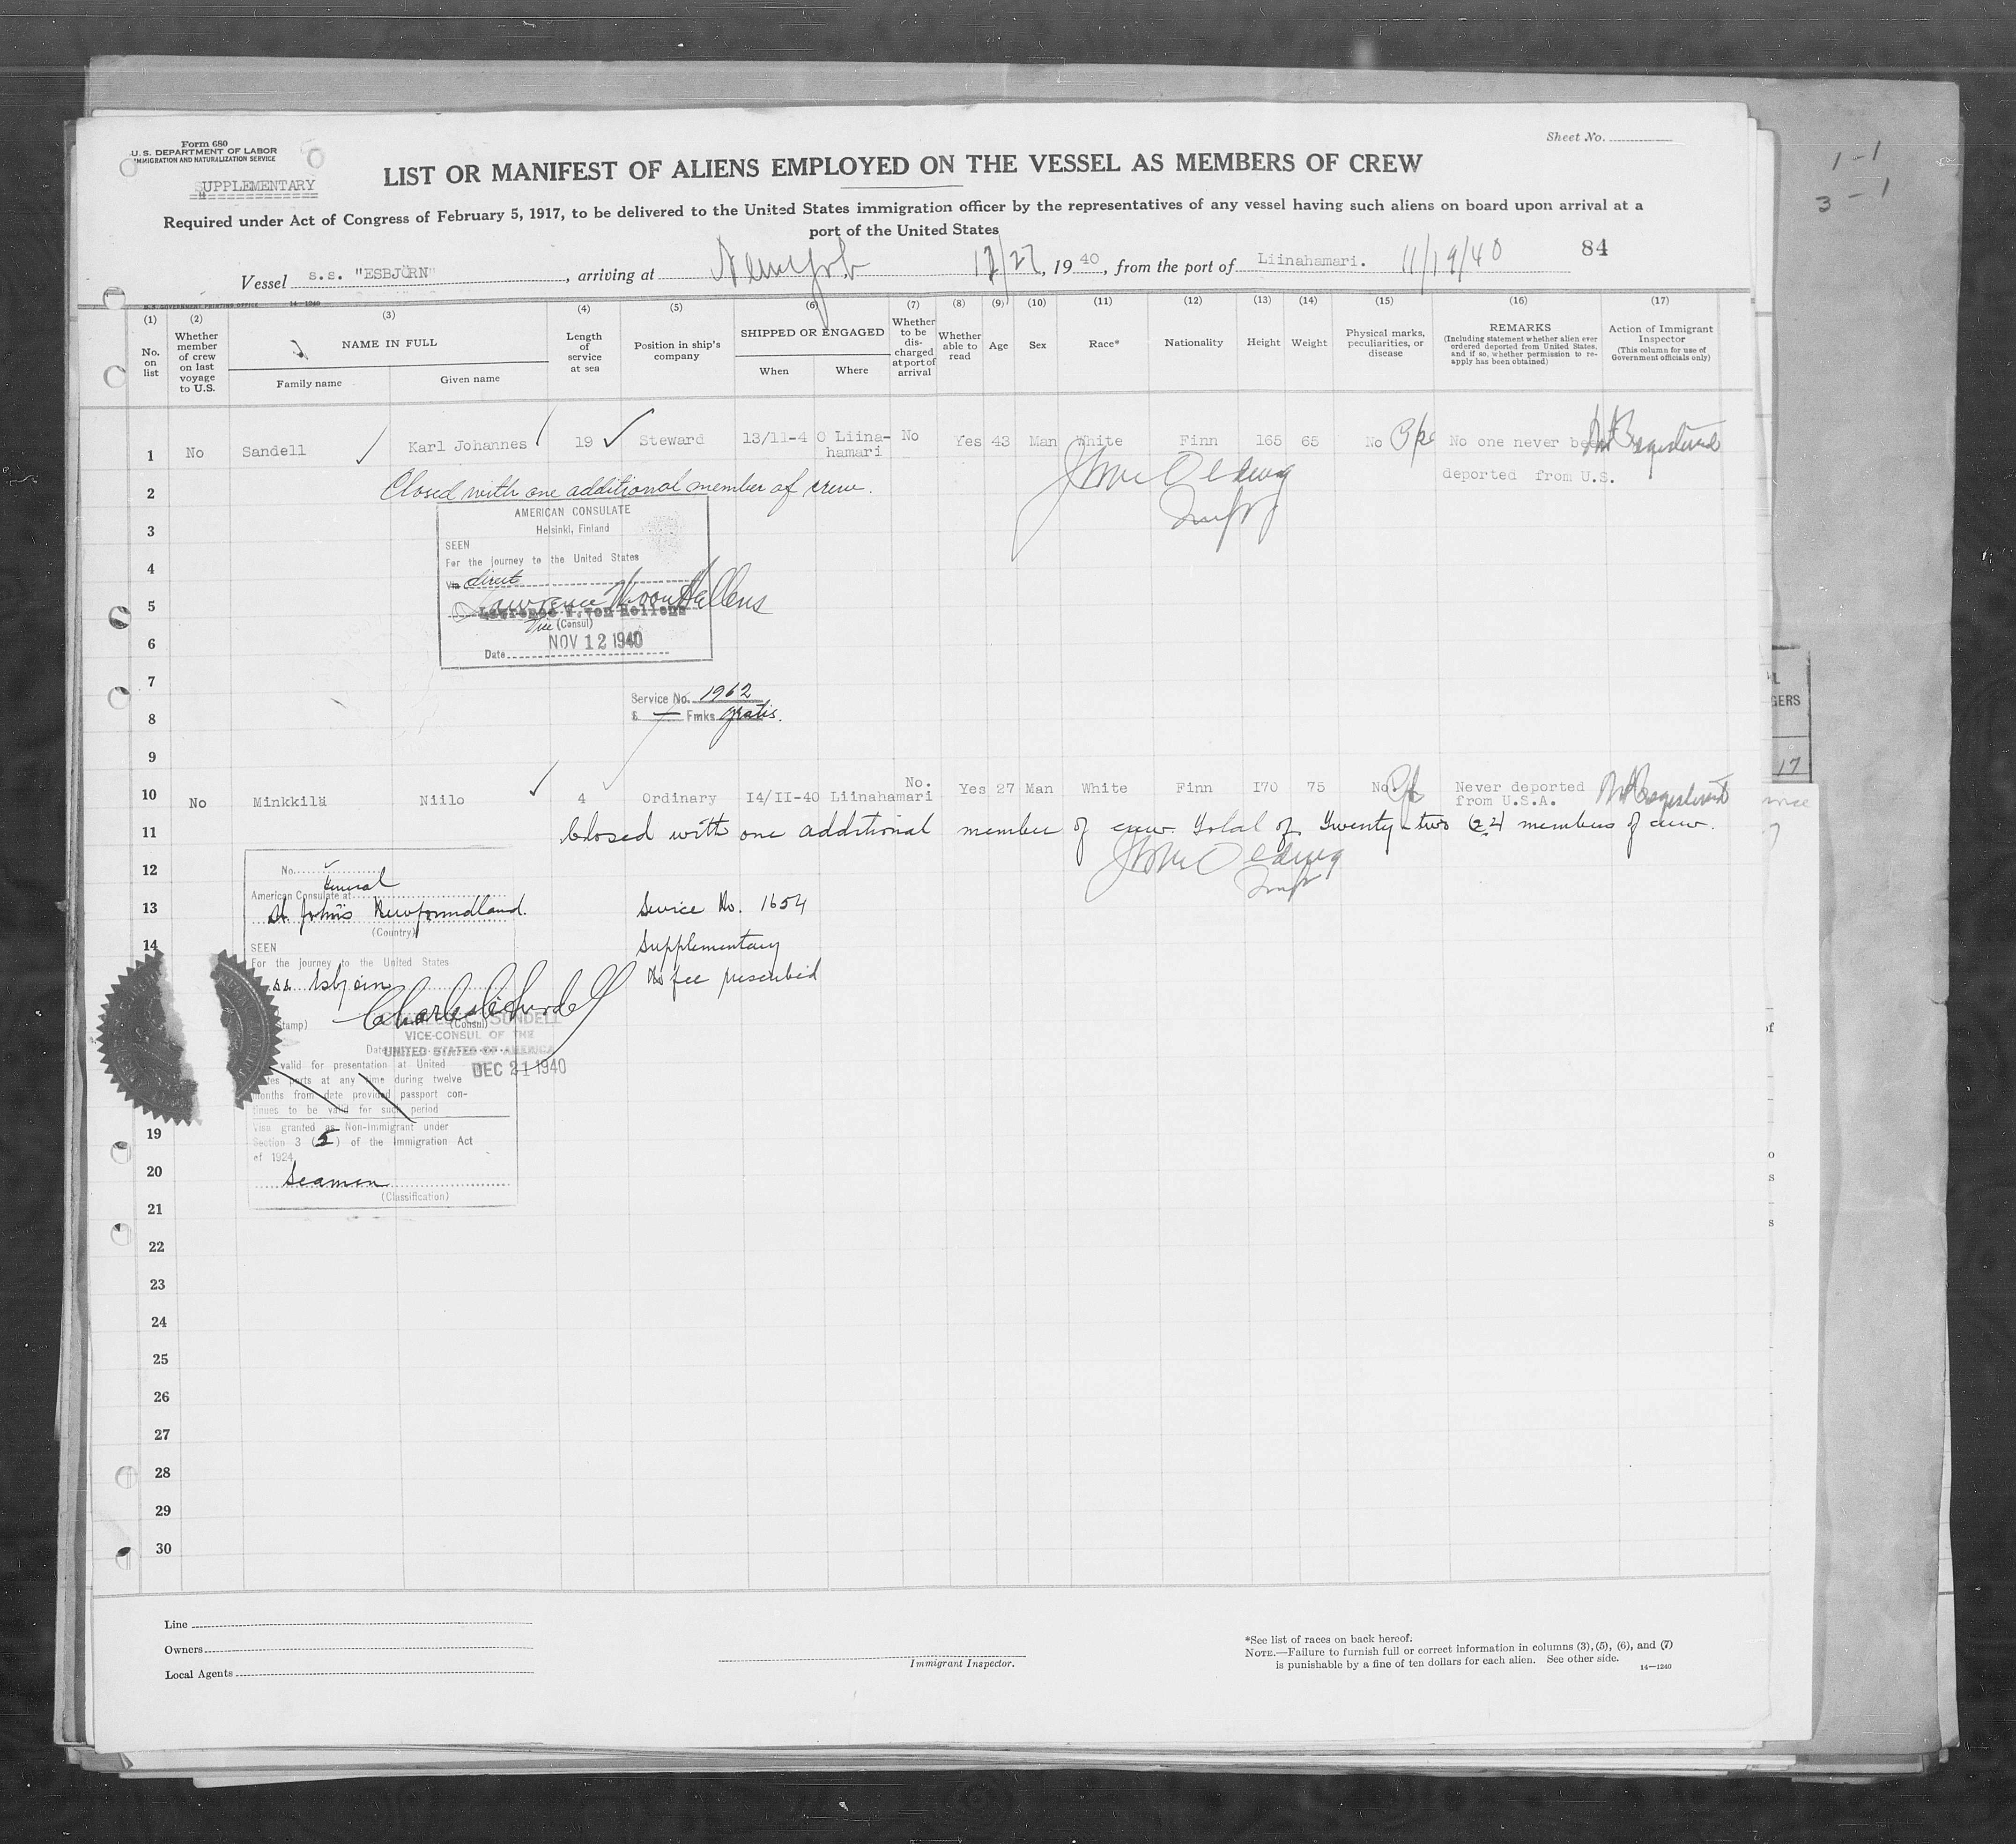 Form 680
U. S. DEPARTMENT OF LABOR
IMMIGRATION AND NATURALIZATION SERVICE
SUPPLEMENTARY
Sheet No.
LIST OR MANIFEST OF ALIENS EMPLOYED ON THE VESSEL AS MEMBERS OF CREW
Required under Act of Congress of February 5, 1917, to be delivered to the United States immigration officer by the representatives of any vessel having such aliens on board upon arrival at a
port of the United States
84
Vessel s.s. "ESBJÖRN", arriving at New York 12/27, 19 40, from the port of Liinahamari. 11/19/40
U. S. GOVERNMENT PRINTING OFFICE 14—1240
(1) No. on list
(2) Whether member of crew on last voyage to U.S.
(3) NAME IN FULL
Family name
Given name
(4) Length of service at sea
(5) Position in ship's company
(6) SHIPPED OR ENGAGED
When
Where
(7) Whether to be discharged at port of arrival
(8) Whether able to read
(9) Age
(10) Sex
(11) Race*
(12) Nationality
(13) Height
(14) Weight
(15) Physical marks, peculiarities, or disease
(16) REMARKS
(Including statement whether alien ever ordered deported from United States, and if so, whether permission to re-apply has been obtained)
(17) Action of Immigrant Inspector
(This column for use of Government officials only)
1 No Sandell Karl Johannes 19 Steward 13/11-40 Liina-hamari No Yes 43 Man White Finn 165 65 No No one never been
deported from U.S.
2 Closed with one additional member of crew.
AMERICAN CONSULATE
Helsinki, Finland
3
SEEN
For the journey to the United States
4
Via direct
5
Lawrence W. von Hellens
Lawrence W. von Hellens
Vice (Consul)
6
NOV 12 1940
Date
7
Service No. 1962
8
$ — Fmks gratis.
9
10 No Minkkilä Niilo 4 Ordinary I4/II-40 Liinahamari No. Yes 27 Man White Finn I70 75 No Never deported
from U.S.A.
11 Closed with one additional member of crew. Total of Twenty-two members of crew.
12
No.
General
American Consulate at
13
St. John's Newfoundland.
(Country)
Service No. 1654
14
Supplementary
No fee prescribed
SEEN
For the journey to the United States
ss Esbjoin
(Consul)
SUNDELL
VICE-CONSUL OF THE
UNITED STATES OF AMERICA
Date
DEC 21 1940
valid for presentation at United
ports at any time during twelve
months from date provided passport con-
tinues to be valid for such period
19
Visa granted as Non-Immigrant under
Section 3 (5) of the Immigration Act
of 1924
20
Seamen
(Classification)
21
22
23
24
25
26
27
28
29
30
Line
Owners
Local Agents
Immigrant Inspector.
*See list of races on back hereof.
NOTE.—Failure to furnish full or correct information in columns (3), (5), (6), and (7)
is punishable by a fine of ten dollars for each alien. See other side.
14—1240
1-1
3-1
GERS
17